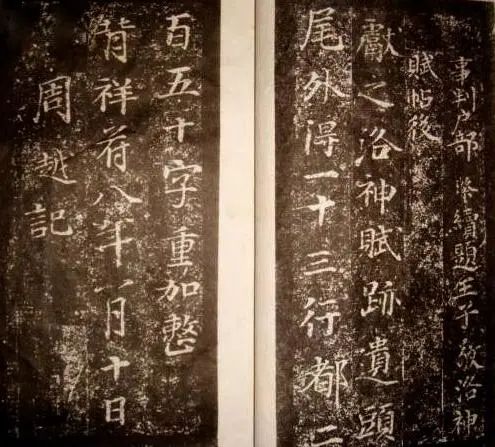 事判户部 續題王子敬洛神
賦帖後
獻之洛神賦跡遺頭
尾外得一十三行都二
百五十字重加整
背祥符八年一月十日
周越記